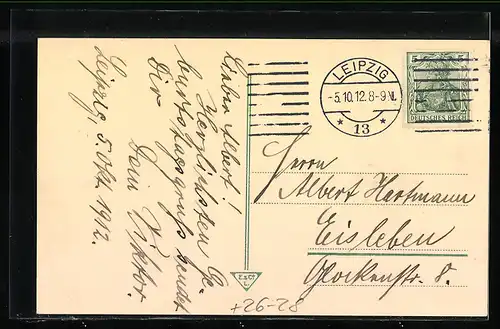 Lieber Albert!
Herzlichsten Ge-
burtstagsgruß sendet
Dir
Dein Viktor.
Leipzig, 5. Okt. 1912.
LEIPZIG
-5.10.12.8-9 N.
* 13 *
DEUTSCHES REICH
Herrn
Albert Hartmann
Eisleben
Glockenstr. 8.
+26-28